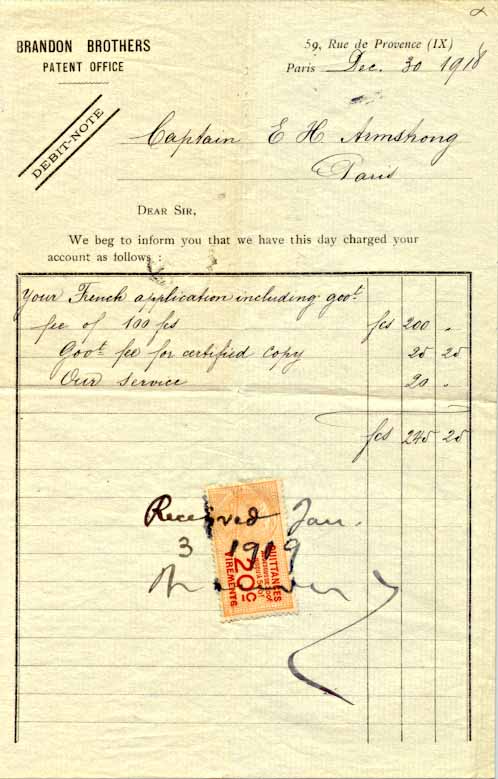 BRANDON BROTHERS
PATENT OFFICE
59, Rue de Provence (IX)
Paris Dec. 30 1918
DEBIT-NOTE
Captain E H Armstrong
Paris
DEAR SIR,
We beg to inform you that we have this day charged your
account as follows :
Your French application including gov.t
fee of 100 fcs fcs 200 "
Gov.t fee for certified copy 25 25
Our service 20 "
fcs 245 25
Received Jan.
3 1919
QUITTANCES
20c
VIREMENTS